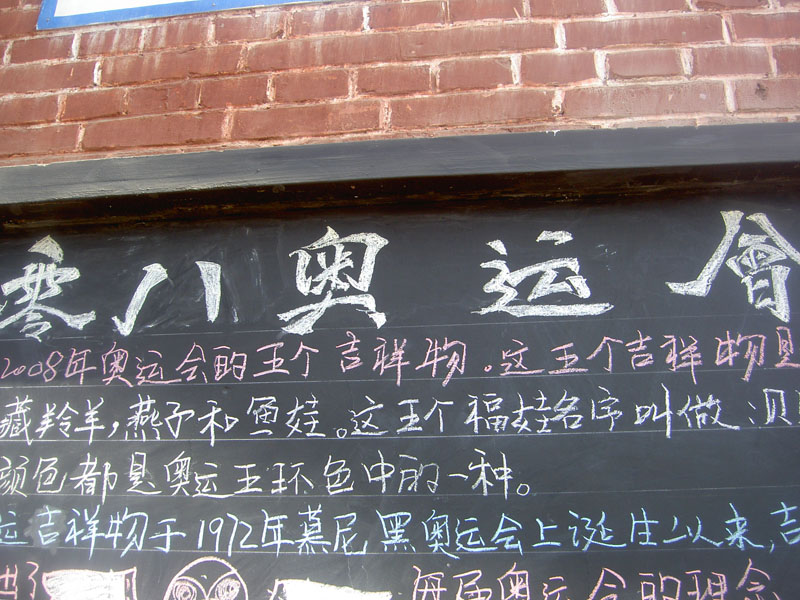 零八奥运會
2008年奥运会的五个吉祥物。这五个吉祥物是
藏羚羊,燕子和鱼娃。这五个福娃名字叫做:贝
颜色都是奥运五环色中的一种。
运吉祥物于1972年慕尼黑奥运会上诞生以来,吉
每届奥运会的理念